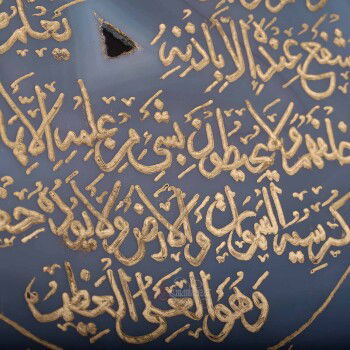 يشفع عنده إلا بإذنه يعلم
خلفهم ولا يحيطون بشيء من علمه إلا بما
كرسيه السموات والأرض ولا يؤده حفظهما
وهو العلي العظيم